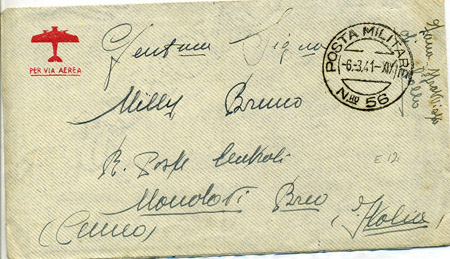 PER VIA AEREA
POSTA MILITARE
-6.3.41-XIX
N.RO 56
Gentma Signa
Milly Bruno
R. Poste Centrali
Mondovì Breo
(Cuneo) (Italia)
E 12